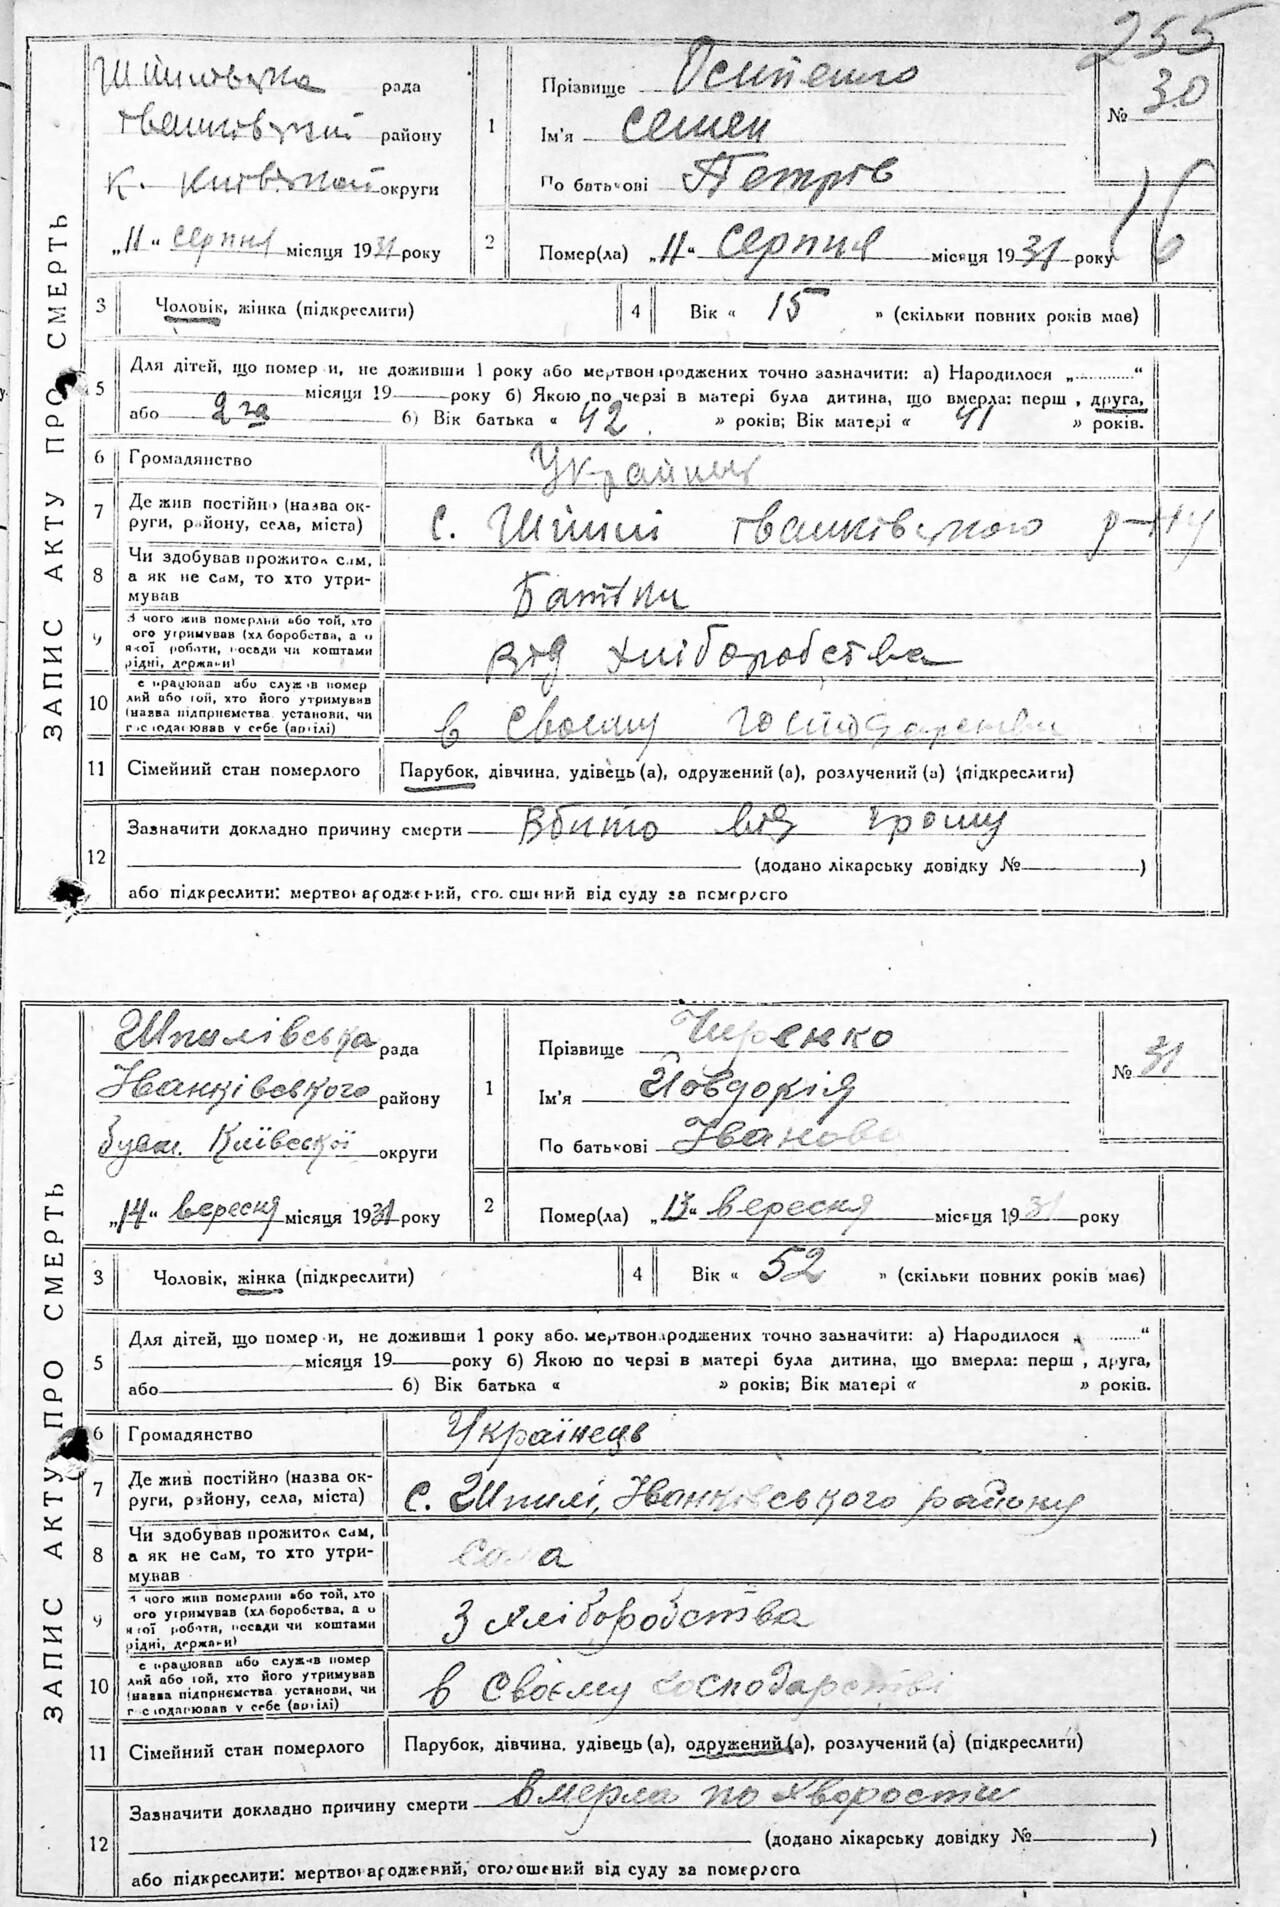 255
ЗАПИС АКТУ ПРО СМЕРТЬ
рада
району
к. округи
„11“ серпня місяця 1931 року
1
Прізвище Осипенко
Ім'я Семен
По батькові Петрів
№ 30
16
2
Помер(ла) „11“ серпня місяця 1931 року
3
Чоловік, жінка (підкреслити)
4
Вік « 15 » (скільки повних років має)
5
Для дітей, що померли, не доживши 1 року або мертвонароджених точно зазначити: а) Народилося „..........“
місяця 19 року б) Якою по черзі в матері була дитина, що вмерла: перша, друга,
або 2га б) Вік батька « 42 » років; Вік матері « 41 » років.
6
Громадянство
7
Де жив постійно (назва ок-
руги, району, села, міста)
с. Шпилі Іванківського р-ну
8
Чи здобував прожиток сам,
а як не сам, то хто утри-
мував
Батьки
9
З чого жив померлий або той, хто
його утримував (хліборобства, а о
якої роботи, посади чи коштами
рідні, держави)
від хліборобства
10
Де працював або служив помер
лий або той, хто його утримував
(назва підприємства установи, чи
господарював у себе (артілі)
в своєму господарстві
11
Сімейний стан померлого
Парубок, дівчина, удівець (а), одружений (а), розлучений (а) (підкреслити)
12
Зазначити докладно причину смерти Вбито від грому
(додано лікарську довідку № )
або підкреслити: мертвонароджений, оголошений від суду за померлого
ЗАПИС АКТУ ПРО СМЕРТЬ
Шпилівська рада
Іванківського району
бувш. Київської округи
„14“ вересня місяця 1931 року
1
Прізвище
Ім'я Йовдокія
По батькові Іванова
№ 31
2
Помер(ла) „13“ вересня місяця 1931 року
3
Чоловік, жінка (підкреслити)
4
Вік « 52 » (скільки повних років має)
5
Для дітей, що померли, не доживши 1 року або мертвонароджених точно зазначити: а) Народилося „ ......“
місяця 19 року б) Якою по черзі в матері була дитина, що вмерла: перша, друга,
або б) Вік батька « » років; Вік матері « » років.
6
Громадянство
Українець
7
Де жив постійно (назва ок-
руги, району, села, міста)
с. Шпилі, Іванківського району
8
Чи здобував прожиток сам,
а як не сам, то хто утри-
мував
сама
9
З чого жив померлий або той, хто
його утримував (хліборобства, а о
якої роботи, посади чи коштами
рідні, держави)
З хліборобства
10
Де працював або служив помер
лий або той, хто його утримував
(назва підприємства установи, чи
господарював у себе (артілі)
в своєму господарстві
11
Сімейний стан померлого
Парубок, дівчина, удівець (а), одружений (а), розлучений (а) (підкреслити)
12
Зазначити докладно причину смерти вмерла по хворости
(додано лікарську довідку № )
або підкреслити: мертвонароджений, оголошений від суду за померлого